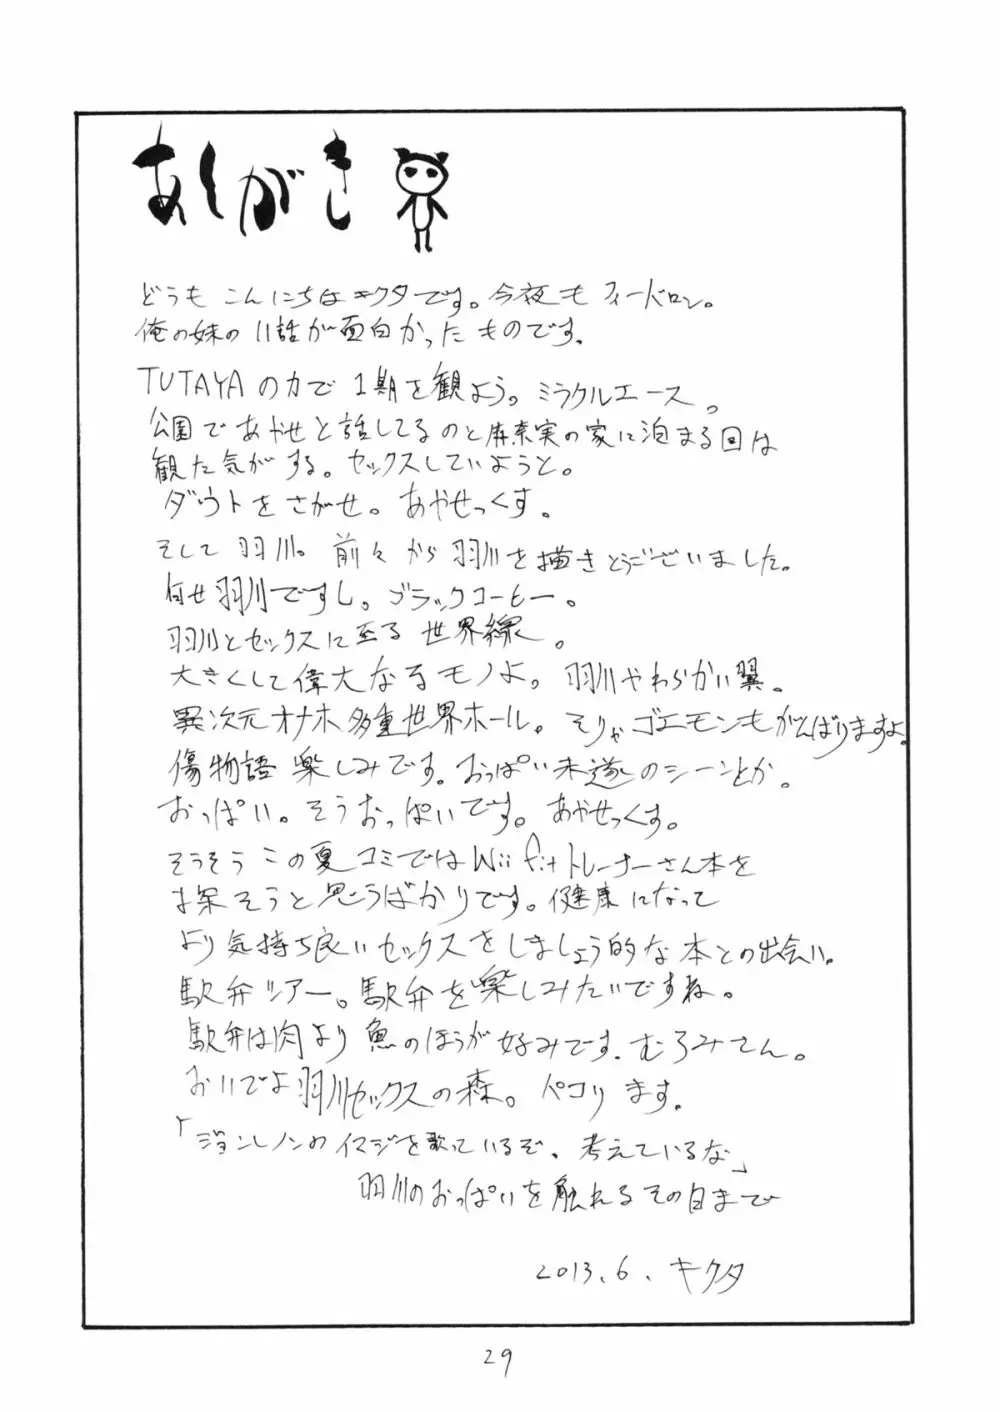 あとがき
どうも こんにちは キクタです。今夜も フィードロン。
俺の妹の 11話が面白かった ものです。
TUTAYAの力で 1期を観よう。ミラクルエース。
公園であやせと話してるのと麻奈実の家に泊まる回は
観た気がする。セックスしていようと。
ダウトをさがせ。あやせっくす。
そして 羽川。前々から羽川を描きとうございました。
何せ羽川ですし。ブラックコーヒー。
羽川とセックスに至る世界線。
大きくして偉大なるモノよ。羽川やわらかい翼。
異次元オナホ多重世界ホール。そりゃゴエモンもがんばりますよ。
傷物語 楽しみです。おっぱい未遂のシーンとか。
おっぱい。そうおっぱいです。あやせっくす。
そうそう この夏コミではWii fitトレーナーさん本を
探そうと思うばかりです。健康になって
より気持ち良いセックスをしましょう的な本との出会い。
駅弁ツアー。駅弁を楽しみたいですね。
駅弁は肉より 魚のほうが好みです。むろみさん。
おいでよ羽川セックスの森。ペコります。
「ジョンレノンのイマジを歌っているぞ、考えているな」
羽川のおっぱいを触れるその日まで
2013.6. キクタ
29